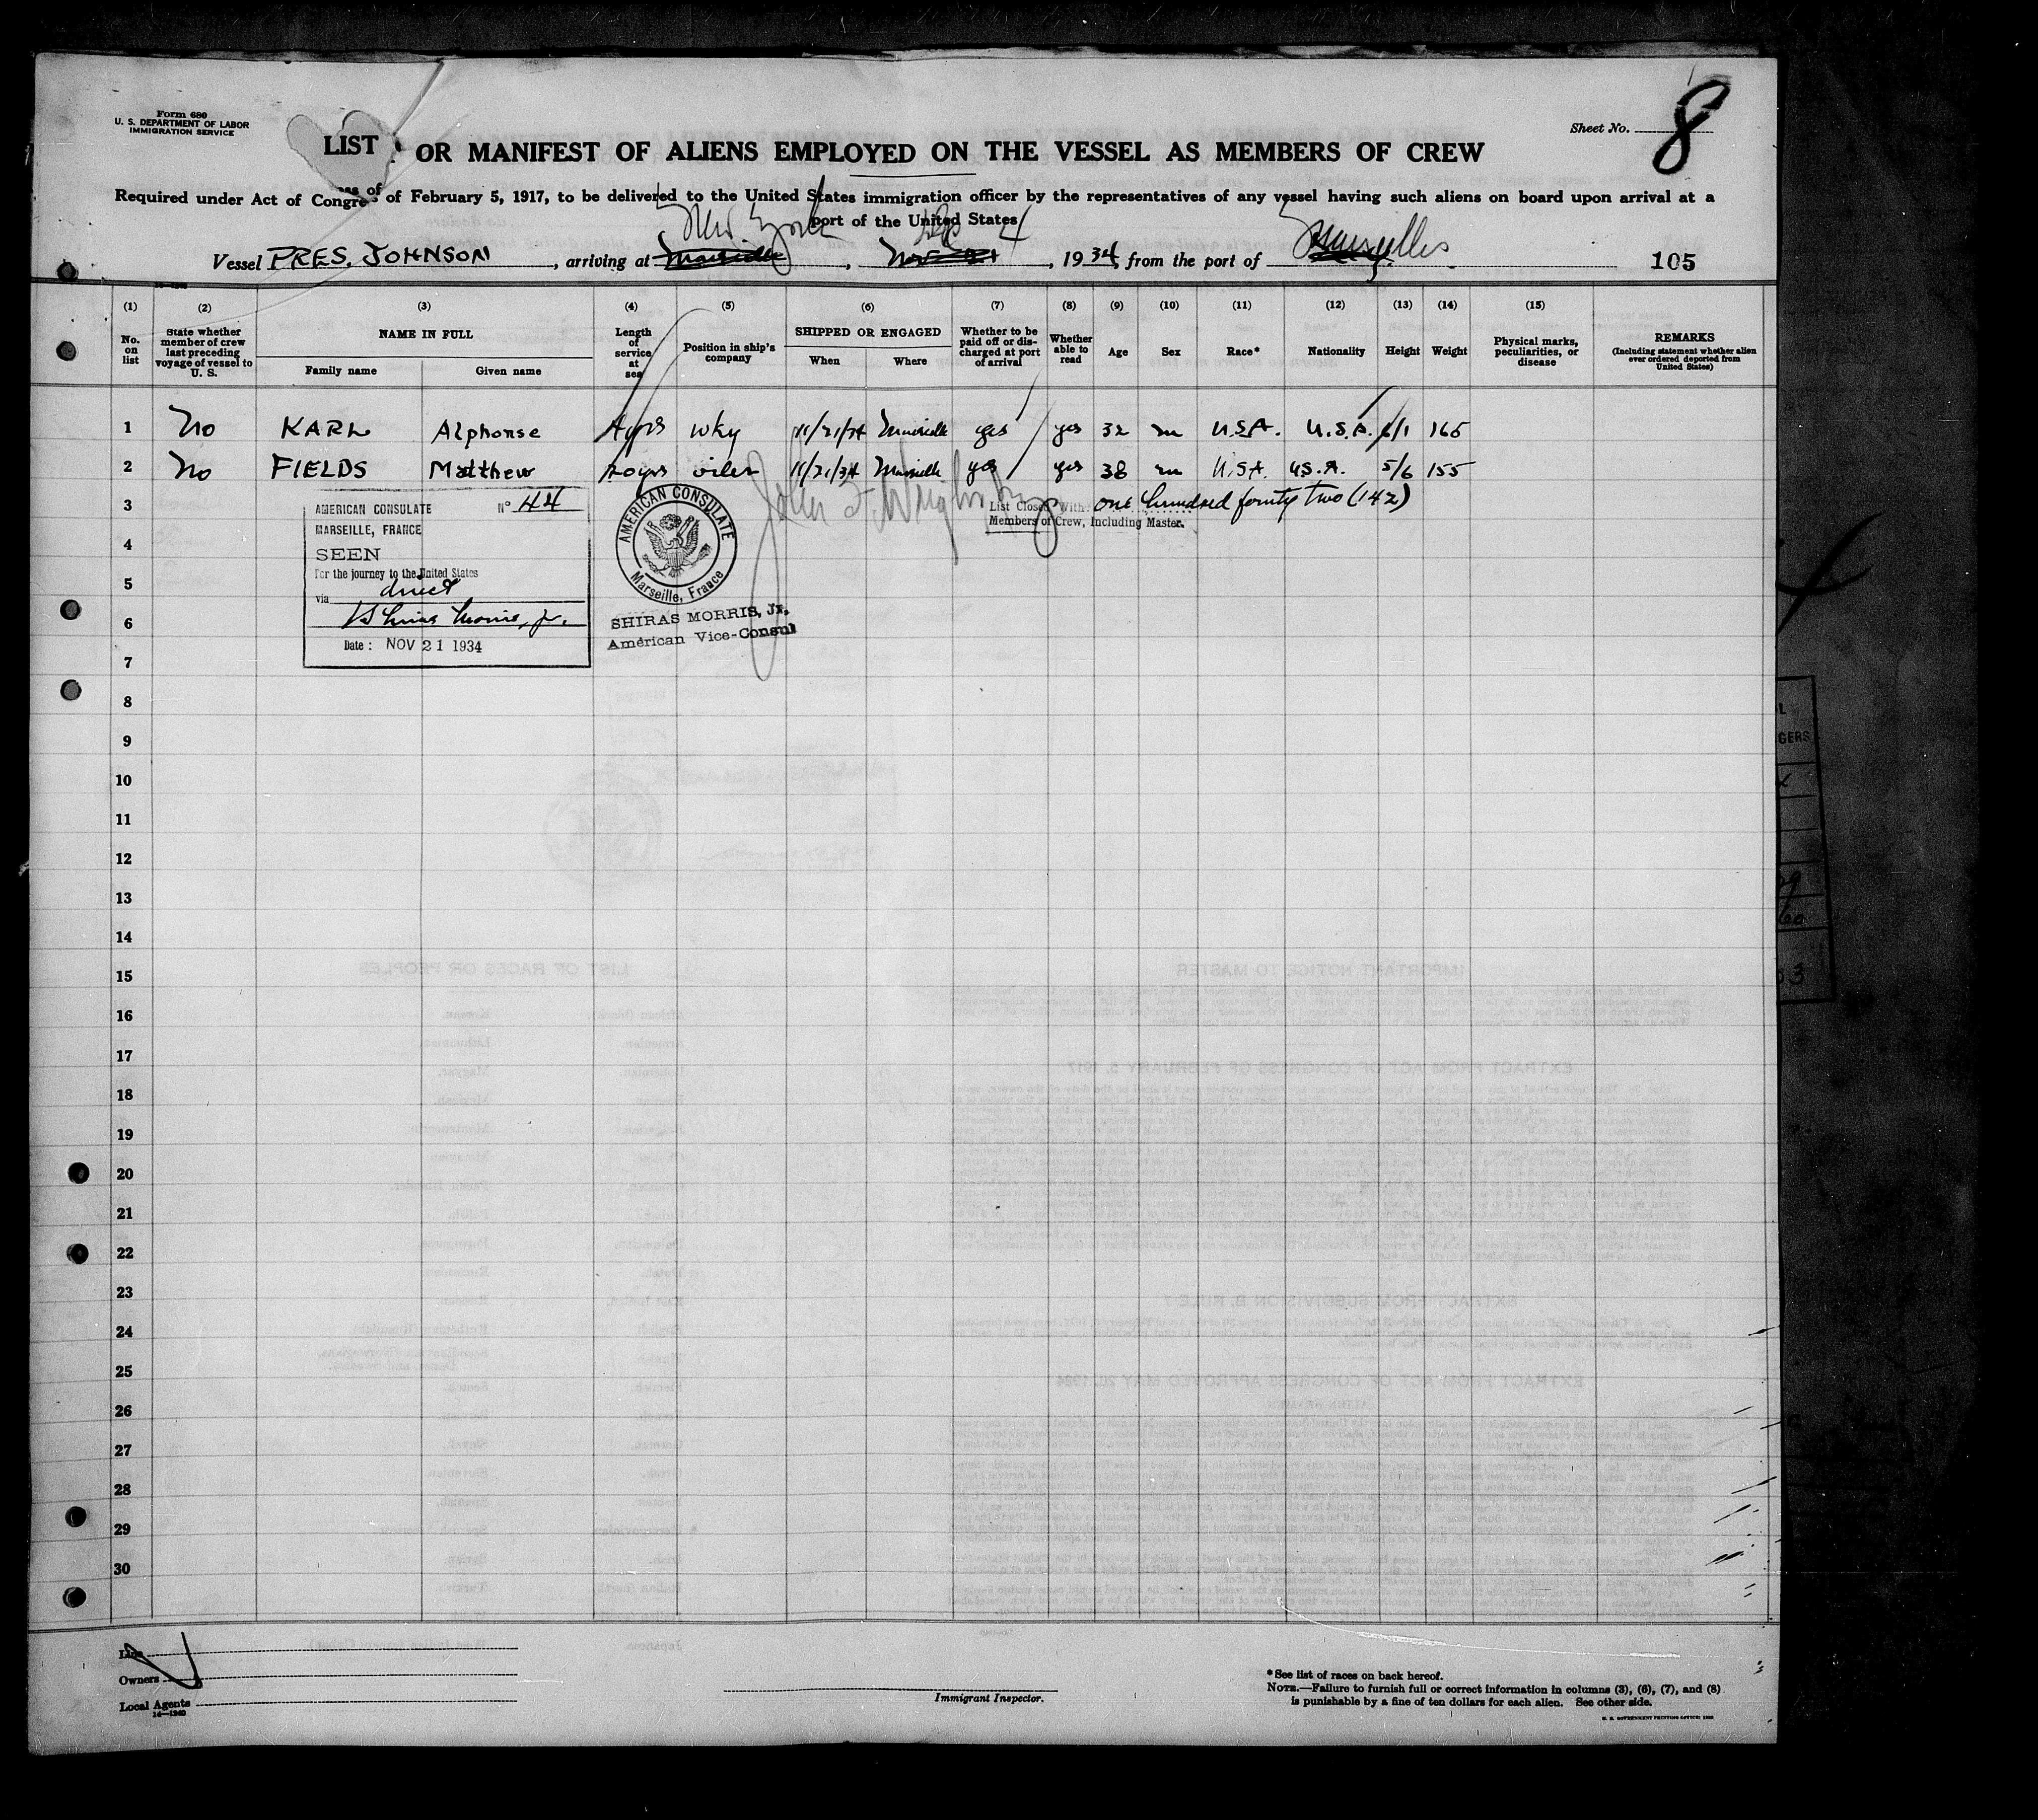 8
Form 680
U. S. DEPARTMENT OF LABOR
IMMIGRATION SERVICE
Sheet No.
LIST OR MANIFEST OF ALIENS EMPLOYED ON THE VESSEL AS MEMBERS OF CREW
Required under Act of Congress of February 5, 1917, to be delivered to the United States immigration officer by the representatives of any vessel having such aliens on board upon arrival at a
port of the United States
New York 4 Marseilles
Vessel PRES. JOHNSON, arriving at Marseille, Nov, 1934, from the port of 105
(1) (2) (3) (4) (5) (6) (7) (8) (9) (10) (11) (12) (13) (14) (15)
No. on list
State whether member of crew last preceding voyage of vessel to U. S.
NAME IN FULL
Family name Given name
Length of service at sea
Position in ship's company
SHIPPED OR ENGAGED
When Where
Whether to be paid off or discharged at port of arrival
Whether able to read
Age Sex Race* Nationality Height Weight
Physical marks, peculiarities, or disease
REMARKS
(Including statement whether alien ever ordered deported from United States)
1 No KARL Alphonse 4yrs wky 11/21/34 Marseille yes yes 32 m U.S.A. U.S.A. 6/1 165
2 No FIELDS Matthew 20yrs oiler 11/21/34 Marseille yes yes 38 m U.S.A. U.S.A. 5/6 155
3
4
5
6
7
8
9
10
11
12
13
14
15
16
17
18
19
20
21
22
23
24
25
26
27
28
29
30
AMERICAN CONSULATE N° 44
MARSEILLE, FRANCE
SEEN
For the journey to the United States
via direct
Shiras Morris, Jr.
Date: NOV 21 1934
AMERICAN CONSULATE
Marseille, France
SHIRAS MORRIS, Jr.
American Vice-Consul
List Closed With one hundred fourty two (142)
Members of Crew, Including Master.
Line
Owners
Local Agents
14—1240
Immigrant Inspector.
*See list of races on back hereof.
NOTE.—Failure to furnish full or correct information in columns (3), (6), (7), and (8)
is punishable by a fine of ten dollars for each alien. See other side.